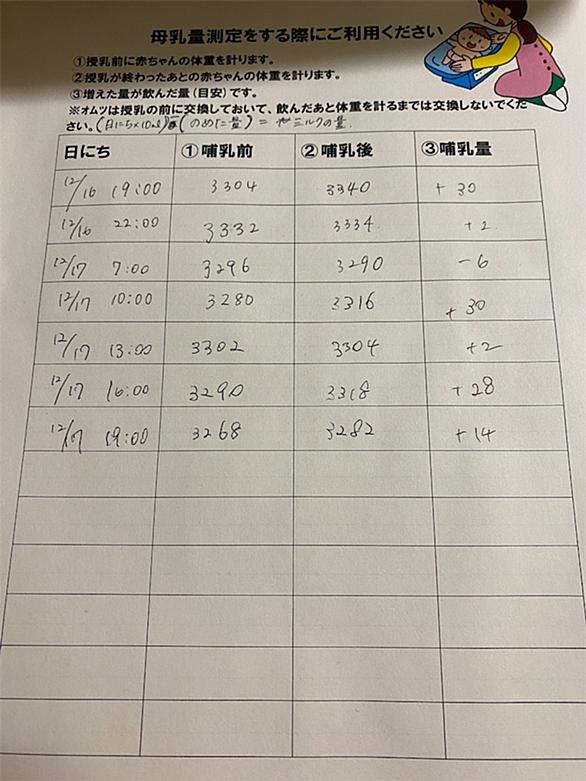 母乳量測定をする際にご利用ください
①授乳前に赤ちゃんの体重を計ります。
②授乳が終わったあとの赤ちゃんの体重を計ります。
③増えた量が飲んだ量(目安)です。
※オムツは授乳の前に交換しておいて、飲んだあと体重を計るまでは交換しないでくだ
さい。(日にち×10ml) (のめた量) = ミルクの量
日にち ①哺乳前 ②哺乳後 ③哺乳量
12/16 19:00 3304 3340 +30
12/16 22:00 3332 3334 +2
12/17 7:00 3296 3290 -6
12/17 10:00 3280 3316 +30
12/17 13:00 3302 3304 +2
12/17 16:00 3290 3318 +28
12/17 19:00 3268 3282 +14